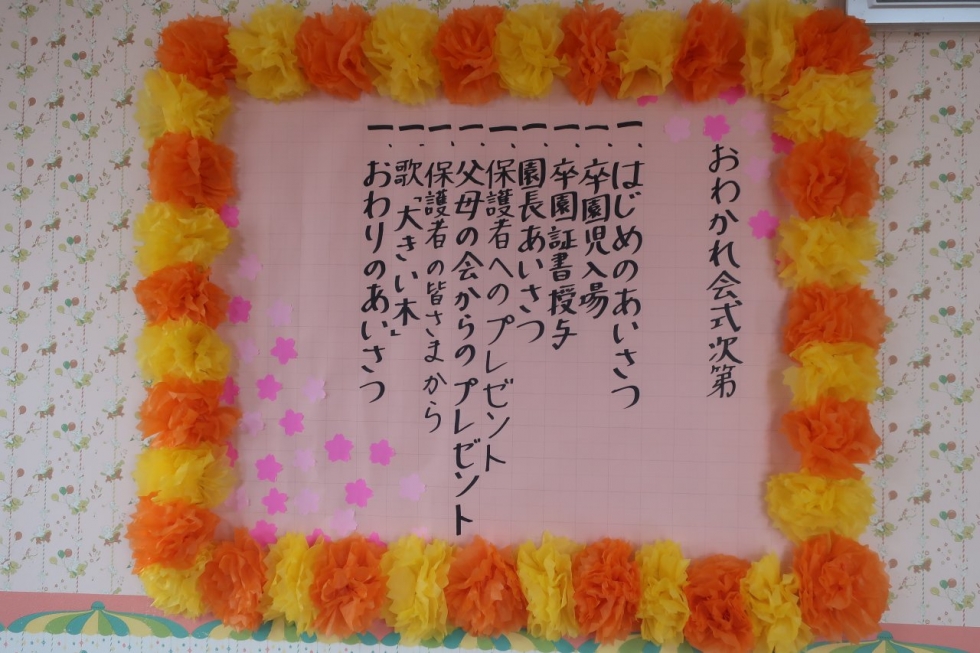 おわかれ会式次第
一、はじめのあいさつ
一、卒園児入場
一、卒園証書授与
一、園長あいさつ
一、保護者へのプレゼント
一、父母の会からのプレゼント
一、保護者の皆さまから
一、歌「大きい木」
一、おわりのあいさつ